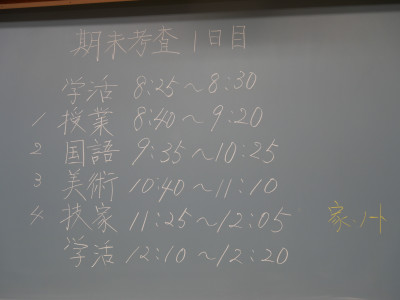 期末考査 1日目
学活 8:25～8:30
1 授業 8:40～9:20
2 国語 9:35～10:25
3 美術 10:40～11:10
4 技家 11:25～12:05 家:ノート
学活 12:10～12:20